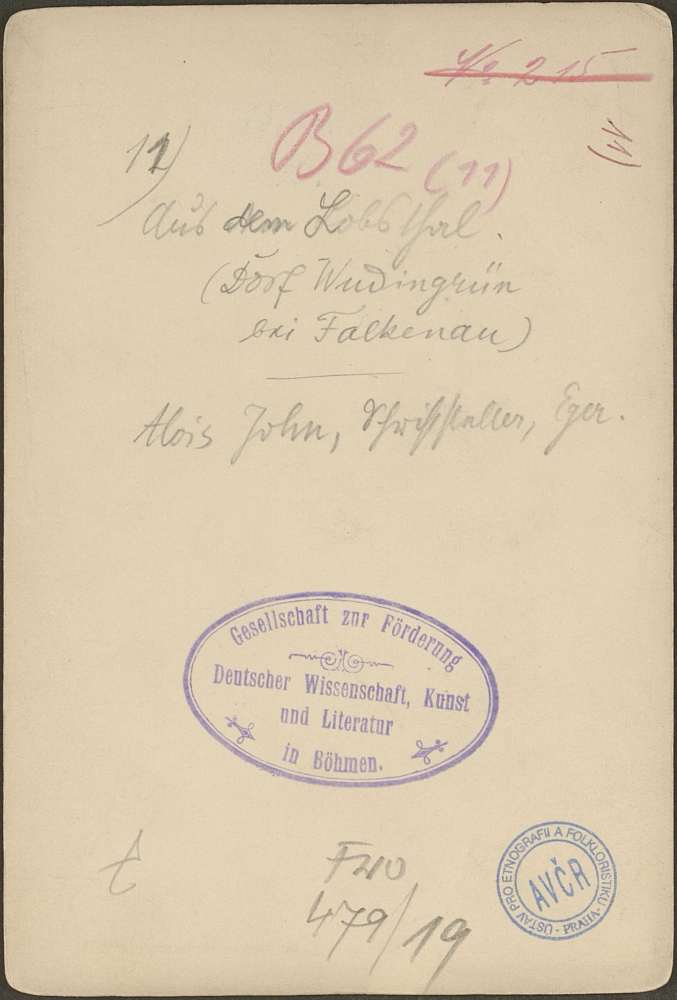 No 215
11)
B 62 (11)
(11)
Aus dem Lobsthal.
(Dorf Wudingrün
bei Falkenau)
Alois John, Schriftsteller, Eger.
Gesellschaft zur Förderung
Deutscher Wissenschaft, Kunst
und Literatur
in Böhmen.
479/19
ÚSTAV PRO ETNOGRAFII A FOLKLORISTIKU - PRAHA -
AVČR